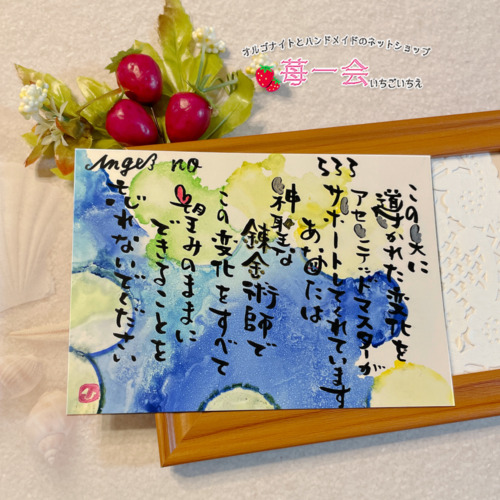 オルゴナイトとハンドメイドのネットショップ
苺一会
いちごいちえ
Angel no
533
この
導かれた変化を
アセンデッドマスターが
サポートしてくれています
あなたは
神聖な
錬金術師で
この変化をすべて
望みのままに
できることを
忘れないでください